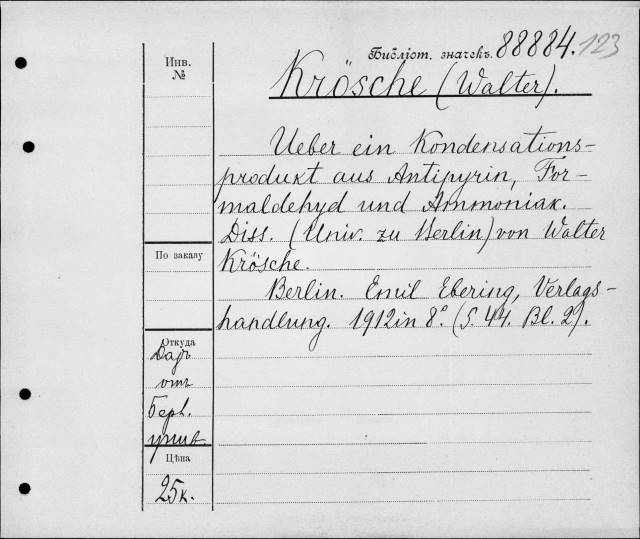 Инв. №
Библіот. значекъ. 88884. 123
Krösche (Walter).
Ueber ein Kondensations-
produkt aus Antipyrin, For-
maldehyd und Ammoniak.
Diss. (Univ. zu Berlin) von Walter
Krösche.
Berlin. Emil Ebering, Verlags-
handlung. 1912 in 8°. (S. 44. Bl. 2).
По заказу
Откуда
Даръ
отъ
Берл.
унив.
Цѣна
25 к.